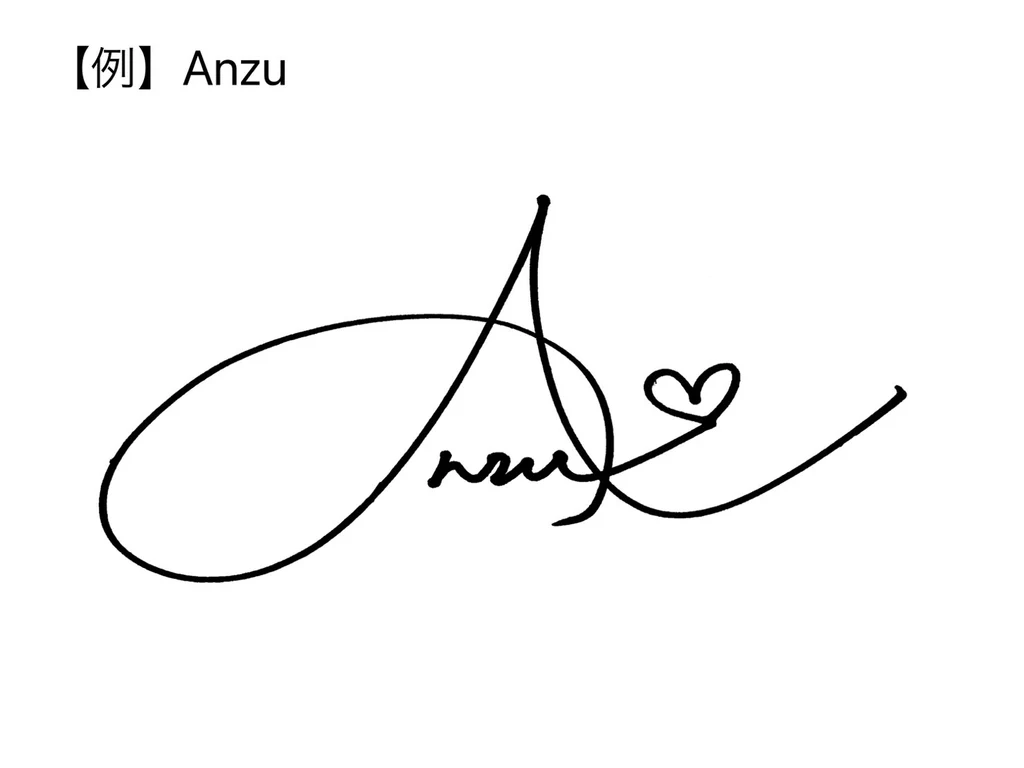 【例】Anzu
Anzu